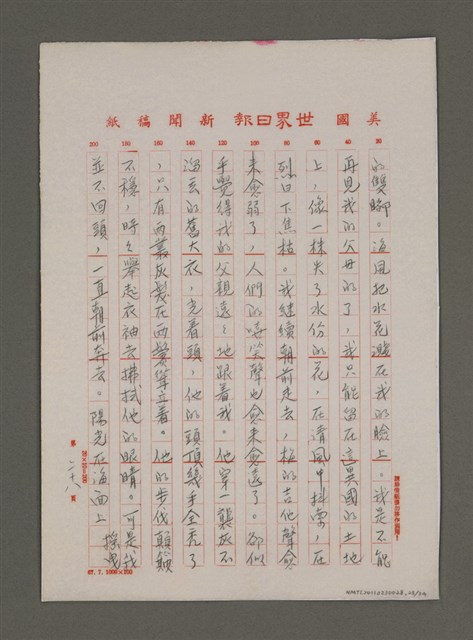 美國世界日報新聞稿紙
200 180 160 140 120 100 80 60 40 20
的雙腳。海風把水花濺在我的臉上。我是不能
再見我的父母的了，我只能留在這異國的土地
上，像一株失了水份的花，在清風中抖索，在
烈日下焦枯。我繼續朝前走去，

的吉他聲愈
來愈弱了，人們的嘻笑聲也愈來愈遠了。卻似
乎覺得我的父親遠遠地跟着我。他穿一襲灰不
溜丟的舊大衣，光着頭，他的頭頂幾乎全禿了
，只有兩叢灰髮在兩鬢聳立着。他的步伐顛簸
不穩，時々舉起衣袖去拂拭他的眼睛。可是我
並不回頭，一直朝前奔去。陽光在海面上搖曳
第二十八頁
67.7.1000×100